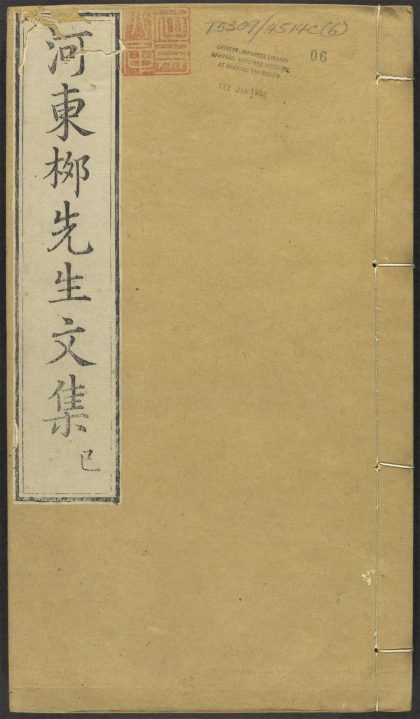 河東栁先生文集
巳
T5309/4514C(6)
CHINESE-JAPANESE LIBRARY
HARVARD-YENCHING INSTITUTE
AT HARVARD UNIVERSITY
06